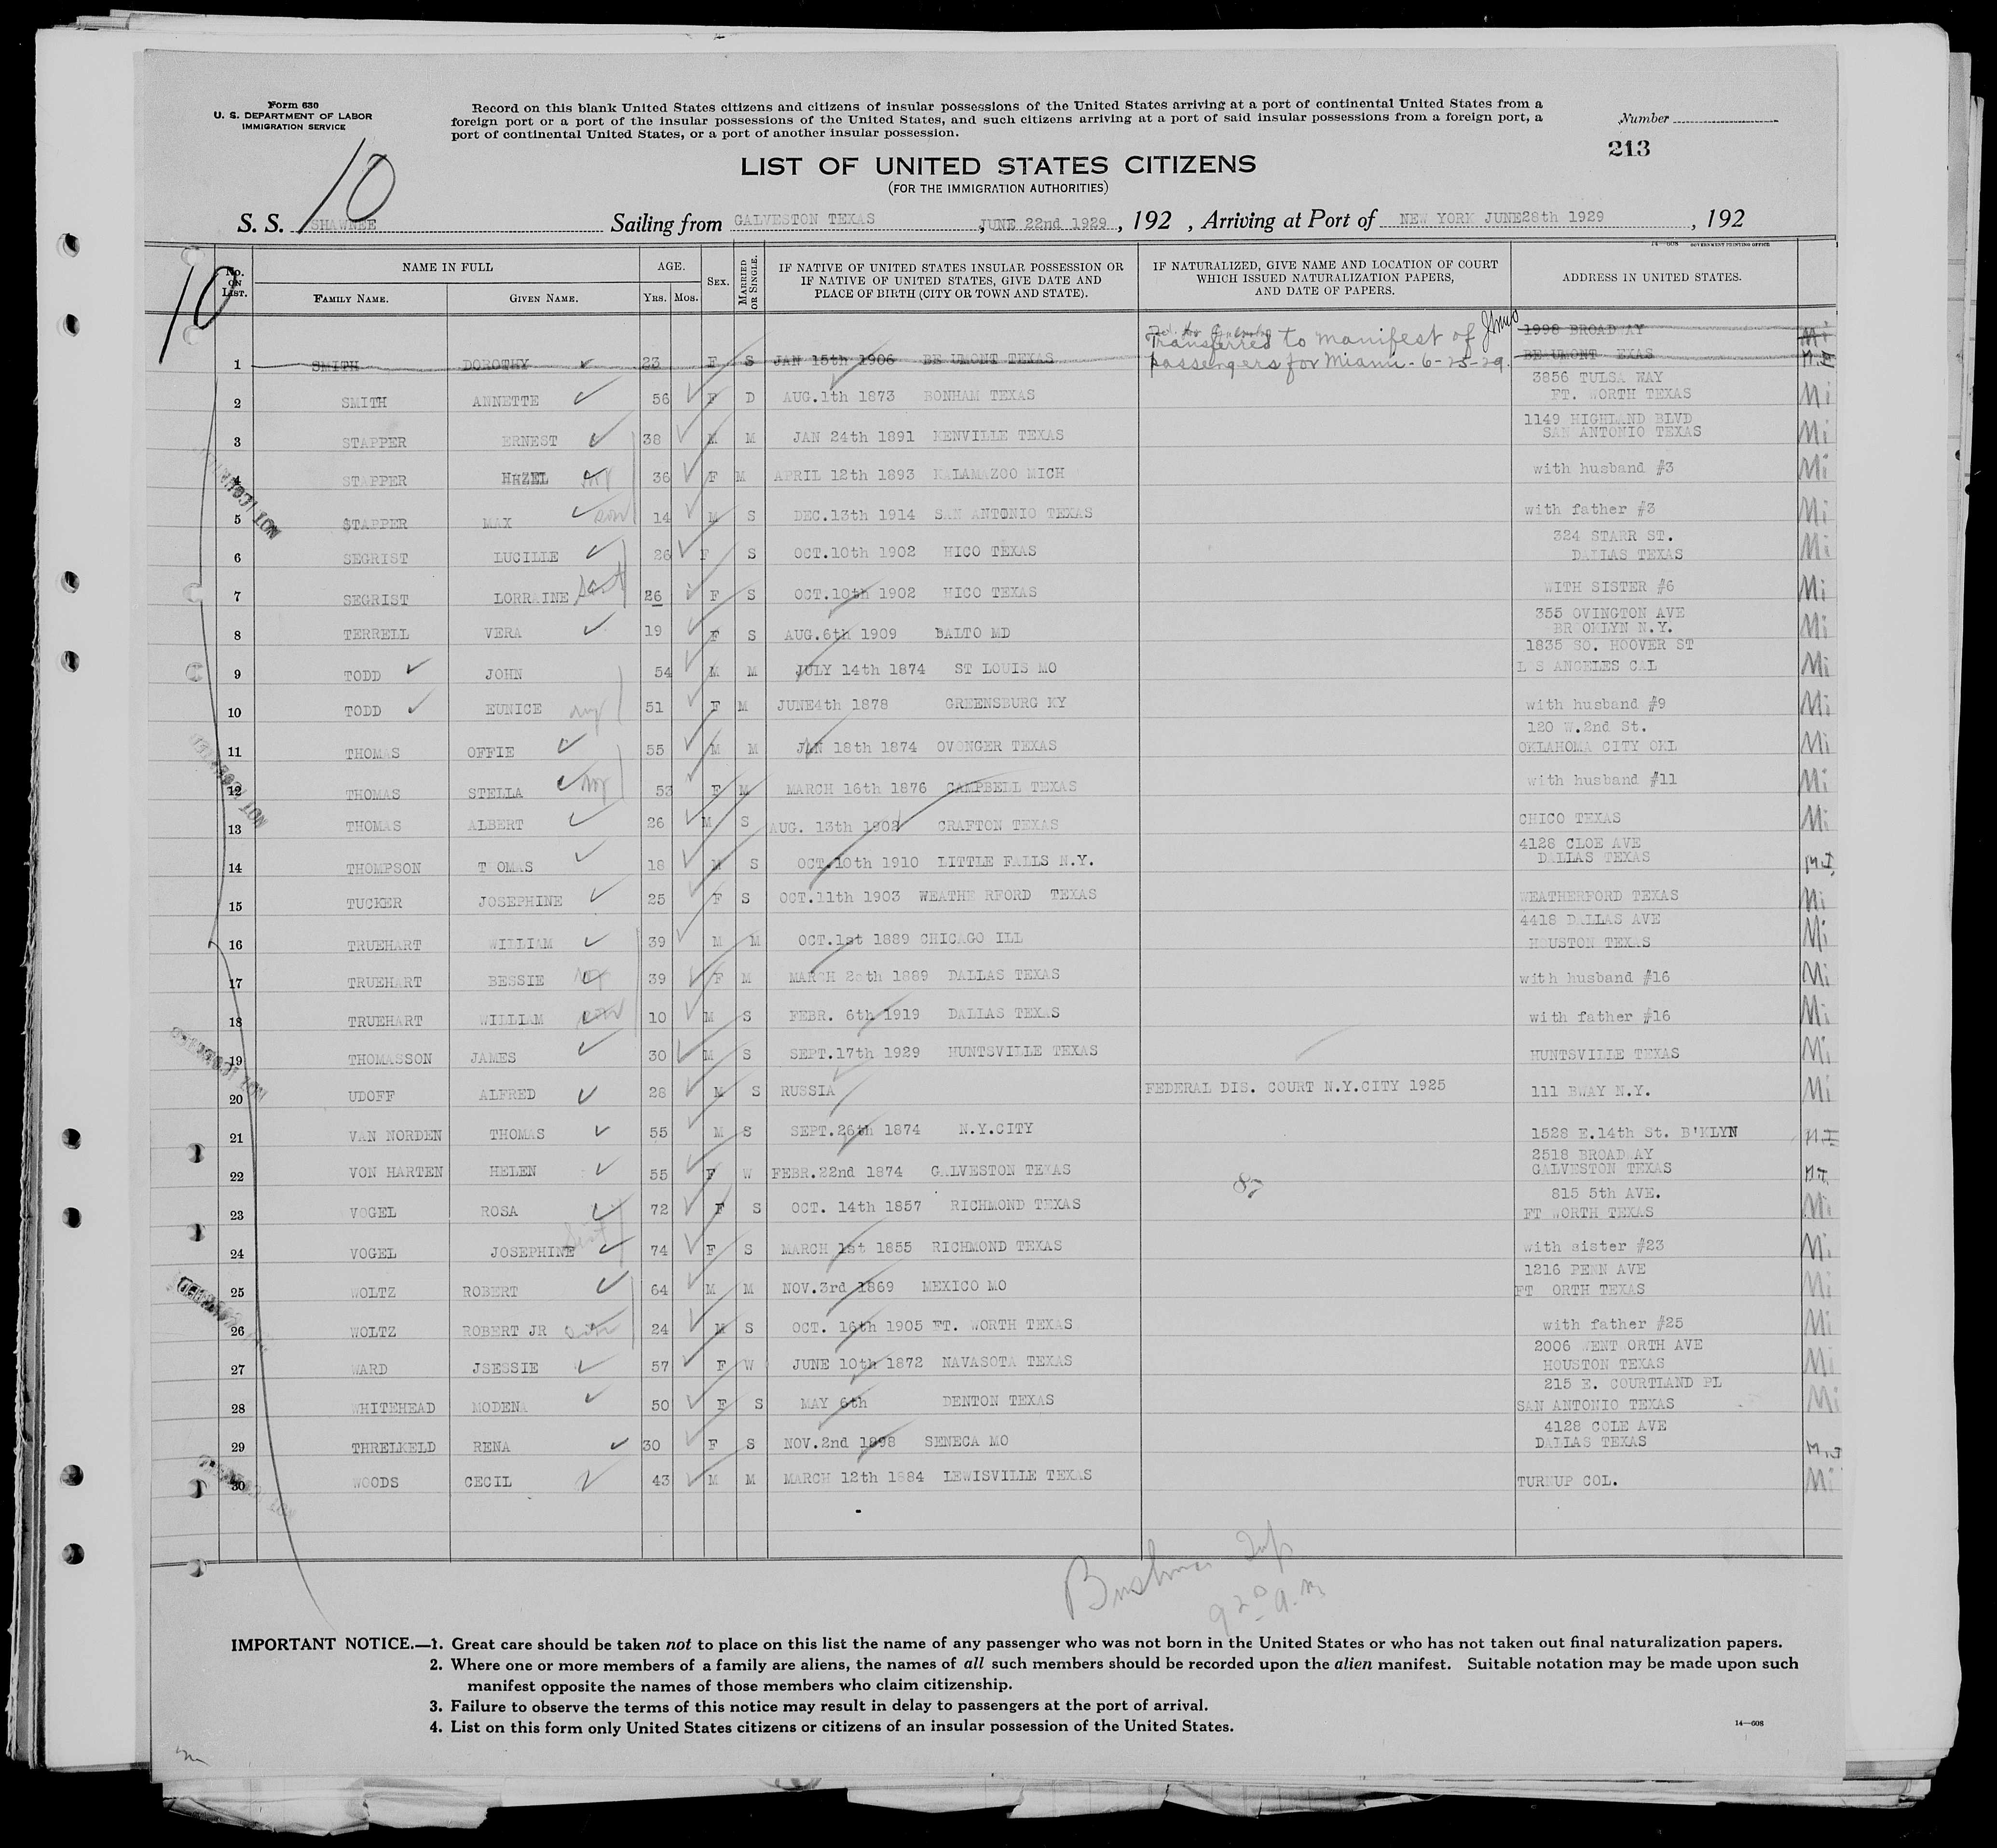 Form 630
U. S. DEPARTMENT OF LABOR
IMMIGRATION SERVICE
Record on this blank United States citizens and citizens of insular possessions of the United States arriving at a port of continental United States from a
foreign port or a port of the insular possessions of the United States, and such citizens arriving at a port of said insular possessions from a foreign port, a
port of continental United States, or a port of another insular possession.
Number
213
10
LIST OF UNITED STATES CITIZENS
(FOR THE IMMIGRATION AUTHORITIES)
S. S. SHAWNEE Sailing from GALVESTON TEXAS , JUNE 22nd 1929 , 192 , Arriving at Port of NEW YORK JUNE28th 1929 , 192
14—608 GOVERNMENT PRINTING OFFICE
10
No. ON LIST. NAME IN FULL FAMILY NAME. GIVEN NAME. AGE. YRS. MOS. SEX. MARRIED OR SINGLE. IF NATIVE OF UNITED STATES INSULAR POSSESSION OR IF NATIVE OF UNITED STATES, GIVE DATE AND PLACE OF BIRTH (CITY OR TOWN AND STATE). IF NATURALIZED, GIVE NAME AND LOCATION OF COURT WHICH ISSUED NATURALIZATION PAPERS, AND DATE OF PAPERS. ADDRESS IN UNITED STATES.
Transferred to manifest of
passengers for Miami - 6-25-29.
1 SMITH DOROTHY 23 F S JAN 15th 1906 BE UMONT TEXAS 1998 BROAD AY BEAUMONT EXAS
2 SMITH ANNETTE 56 F D AUG.1th 1873 BONHAM TEXAS 3856 TULSA WAY FT. WORTH TEXAS Mi
3 STAPPER ERNEST 38 M M JAN 24th 1891 KENVILLE TEXAS 1149 HIGHLAND BLVD SAN ANTONIO TEXAS Mi
4 STAPPER HAZEL 36 F M APRIL 12th 1893 KALAMAZOO MICH with husband #3 Mi
5 STAPPER MAX son 14 M S DEC.13th 1914 SAN ANTONIO TEXAS with father #3 Mi
6 SEGRIST LUCILLE 26 F S OCT.10th 1902 HICO TEXAS 324 STARR ST. DALLAS TEXAS Mi
7 SEGRIST LORRAINE 26 F S OCT.10th 1902 HICO TEXAS WITH SISTER #6 Mi
8 TERRELL VERA 19 F S AUG.6th 1909 BALTO MD 355 OVINGTON AVE BROOKLYN N.Y. Mi
9 TODD JOHN 54 M M JULY 14th 1874 ST LOUIS MO 1835 SO. HOOVER ST L S ANGELES CAL Mi
10 TODD EUNICE 51 F M JUNE4th 1878 GREENSBURG KY with husband #9 Mi
11 THOMAS OFFIE 55 M M JAN 18th 1874 OVONGER TEXAS 120 W.2nd St. OKLAHOMA CITY OKL Mi
12 THOMAS STELLA 53 F M MARCH 16th 1876 CAMPBELL TEXAS with husband #11 Mi
13 THOMAS ALBERT 26 M S AUG. 13th 1902 CRAFTON TEXAS CHICO TEXAS Mi
14 THOMPSON T OMAS 18 M S OCT.10th 1910 LITTLE FALLS N.Y. 4128 CLOE AVE DALLAS TEXAS M.I.
15 TUCKER JOSEPHINE 25 F S OCT.11th 1903 WEATHE RFORD TEXAS WEATHERFORD TEXAS Mi
16 TRUEHART WILLIAM 39 M M OCT.1st 1889 CHICAGO ILL 4418 DALLAS AVE HOUSTON TEXAS Mi
17 TRUEHART BESSIE 39 F M MARCH 28th 1889 DALLAS TEXAS with husband #16 Mi
18 TRUEHART WILLIAM son 10 M S FEBR. 6th 1919 DALLAS TEXAS with father #16 Mi
19 THOMASSON JAMES 30 M S SEPT.17th 1929 HUNTSVILLE TEXAS HUNTSVILLE TEXAS Mi
20 UDOFF ALFRED 28 M S RUSSIA FEDERAL DIS. COURT N.Y.CITY 1925 111 BWAY N.Y. Mi
21 VAN NORDEN THOMAS 55 M S SEPT.26th 1874 N.Y.CITY 1528 E.14th St. B'KLYN M.I
22 VON HARTEN HELEN 55 F W FEBR.22nd 1874 GALVESTON TEXAS 87 2518 BROADWAY GALVESTON TEXAS M.I.
23 VOGEL ROSA 72 F S OCT. 14th 1857 RICHMOND TEXAS 815 5th AVE. FT WORTH TEXAS Mi
24 VOGEL JOSEPHINE 74 F S MARCH 1st 1855 RICHMOND TEXAS with sister #23 Mi
25 WOLTZ ROBERT 64 M M NOV.3rd 1869 MEXICO MO 1216 PENN AVE FT ORTH TEXAS Mi
26 WOLTZ ROBERT JR 24 M S OCT. 16th 1905 FT. WORTH TEXAS with father #25 Mi
27 WARD JSESSIE 57 F W JUNE 10th 1872 NAVASOTA TEXAS 2006 WENT ORTH AVE HOUSTON TEXAS Mi
28 WHITEHEAD MODENA 50 F S MAY 6th DENTON TEXAS 215 E. COURTLAND PL SAN ANTONIO TEXAS Mi
29 THRELKELD RENA 30 F S NOV.2nd 1898 SENECA MO 4128 COLE AVE DALLAS TEXAS M.I
30 WOODS CECIL 43 M M MARCH 12th 1884 LEWISVILLE TEXAS TURNUP COL. Mi
9 20 a.m
IMPORTANT NOTICE.—1. Great care should be taken not to place on this list the name of any passenger who was not born in the United States or who has not taken out final naturalization papers.
2. Where one or more members of a family are aliens, the names of all such members should be recorded upon the alien manifest. Suitable notation may be made upon such
manifest opposite the names of those members who claim citizenship.
3. Failure to observe the terms of this notice may result in delay to passengers at the port of arrival.
4. List on this form only United States citizens or citizens of an insular possession of the United States.
14—608